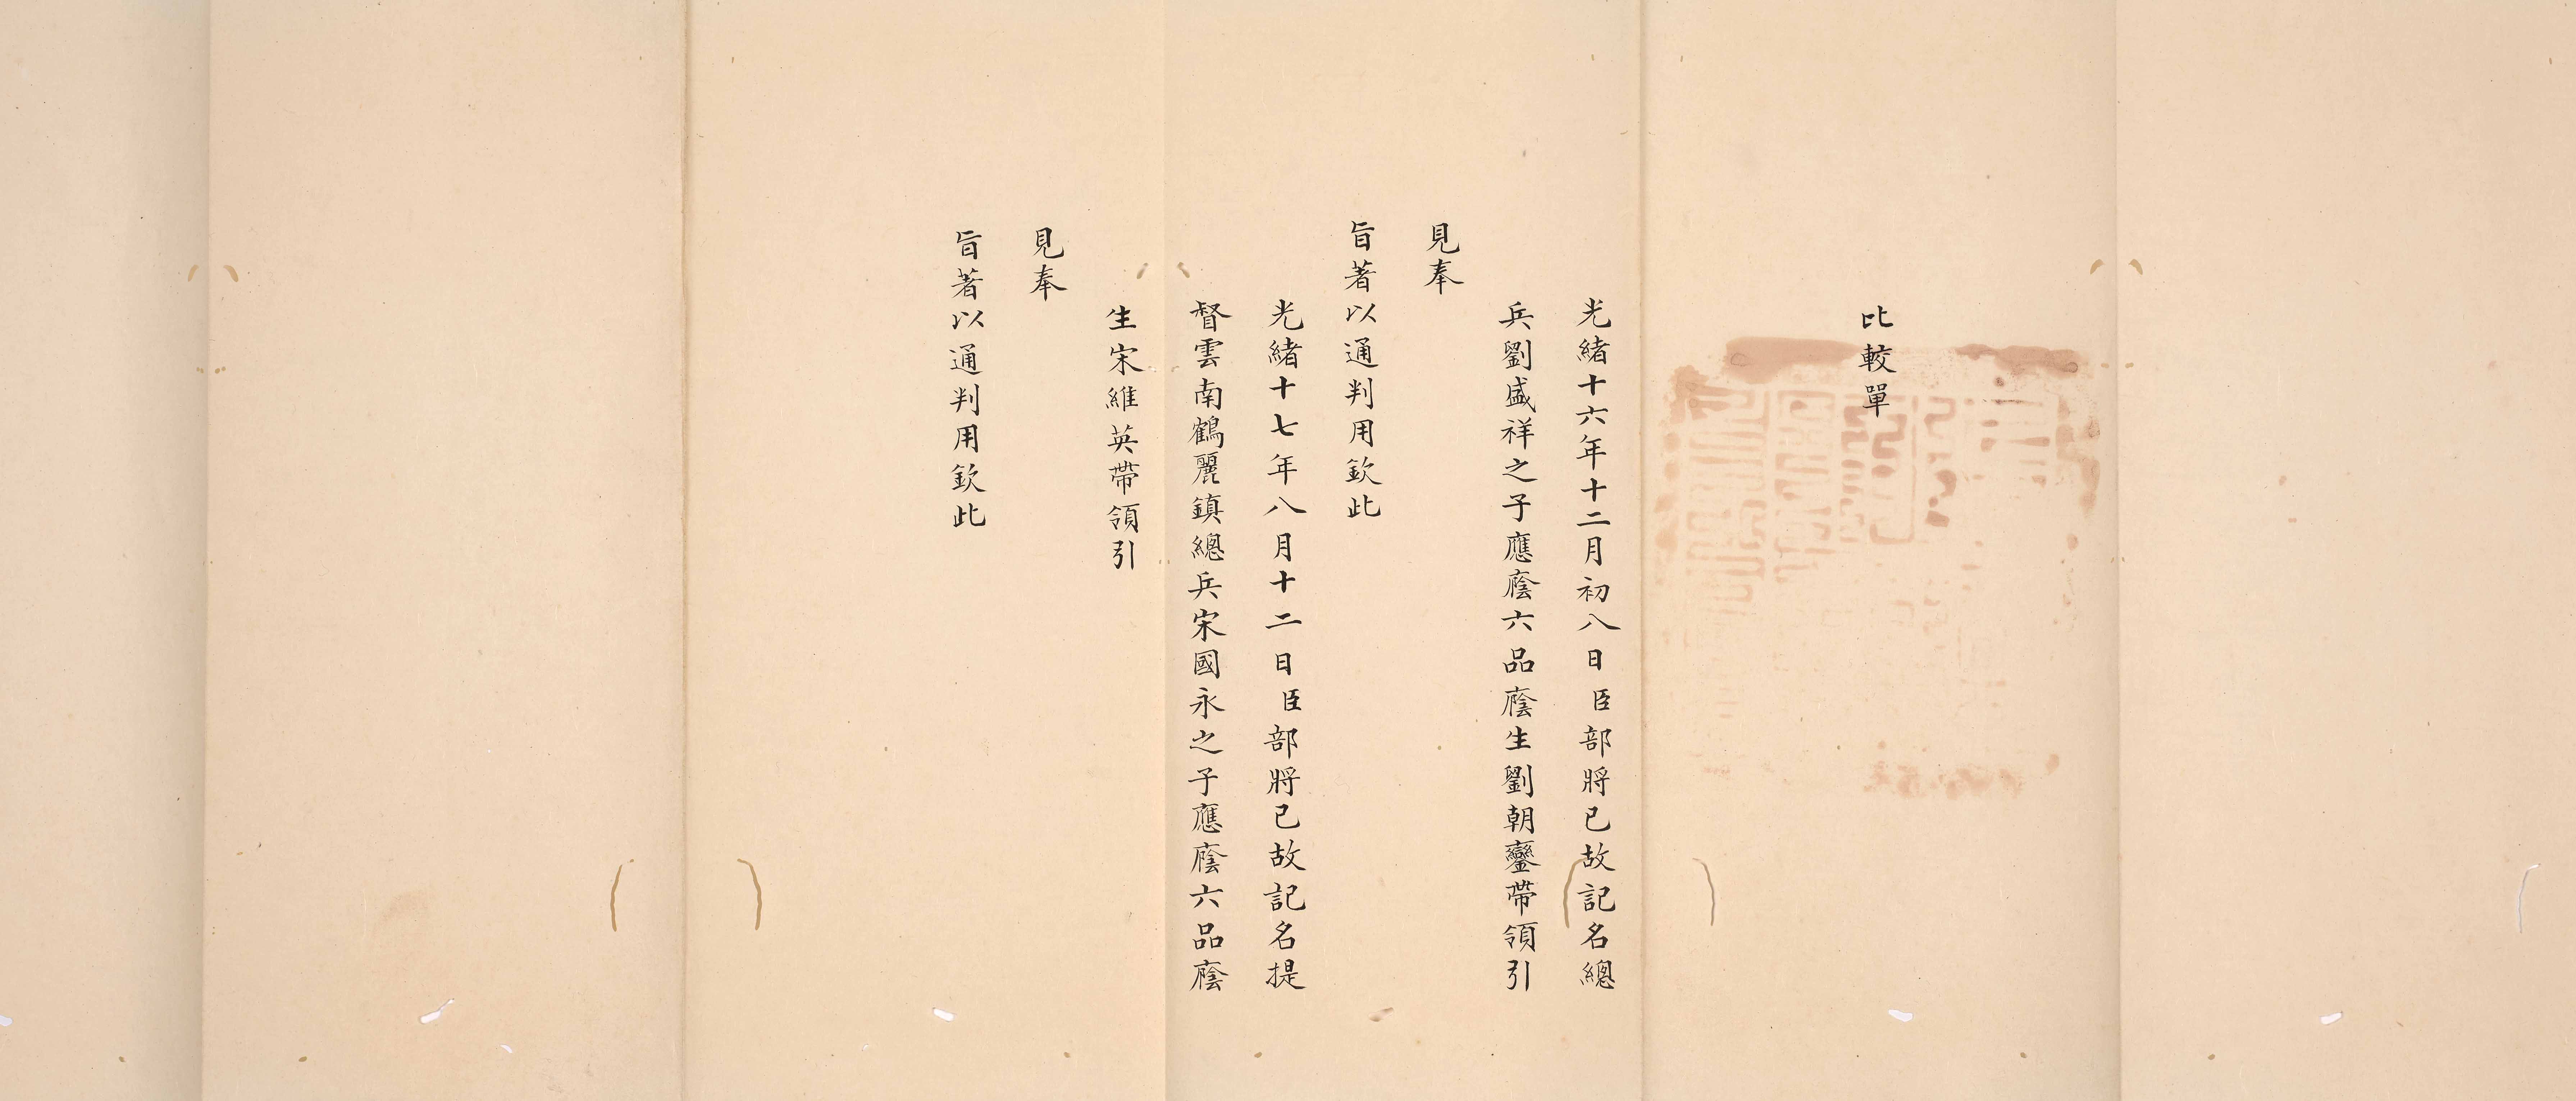 比較單
光緒十六年十二月初八日臣部將已故記名總
兵劉盛祥之子應廕六品廕生劉朝鑾帶領引
見奉
旨著以通判用欽此
光緒十七年八月十二日臣部將已故記名提
督雲南鶴麗鎮總兵宋國永之子應廕六品廕
生宋維英帶領引
見奉
旨著以通判用欽此